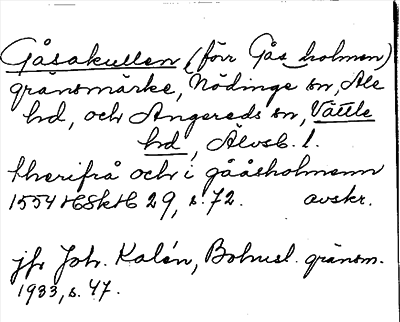 Gåsakullen (förr Gås holmen)
gränsmärke, Nödinge sn, Ale
hd, och Angereds sn, Vättle
hd, Älvsb. l.
therifrå och i gååsholmenn
1554 HSkH 29, s. 72. avskr.
jfr Joh. Kalén, Bohusl. gränsm.
1933, s. 47.